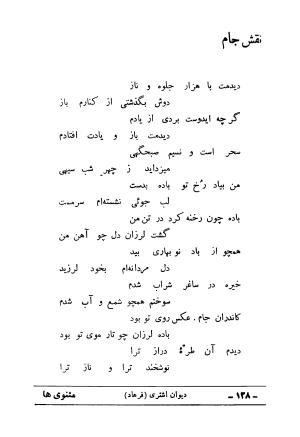 نقش جام
دیدمت با هزار جلوه و ناز
دوش بگذشتی از کنارم باز
گرچه ایدوست بردی از یادم
دیدمت باز و یادت افتادم
سحر است و نسیم صبحگهی
میزداید ز چهر شب سیهی
من بیاد رخ تو باده بدست
لب جوئی نشسته‌ام سرمست
باده چون رخنه کرد در تن من
گشت لرزان دل چو آهن من
همچو از باد نو بهاری بید
دل مردانه‌ام بخود لرزید
خیره در ساغر شراب شدم
سوختم همچو شمع و آب شدم
کاندران جام، عکس روی تو بود
باده لرزان چو تار موی تو بود
دیدم آن طرّهٔ دراز ترا
نوشخند ترا و ناز ترا
مثنوی ها دیوان اشتری (فرهاد) ـ ۱۲۸ ـ